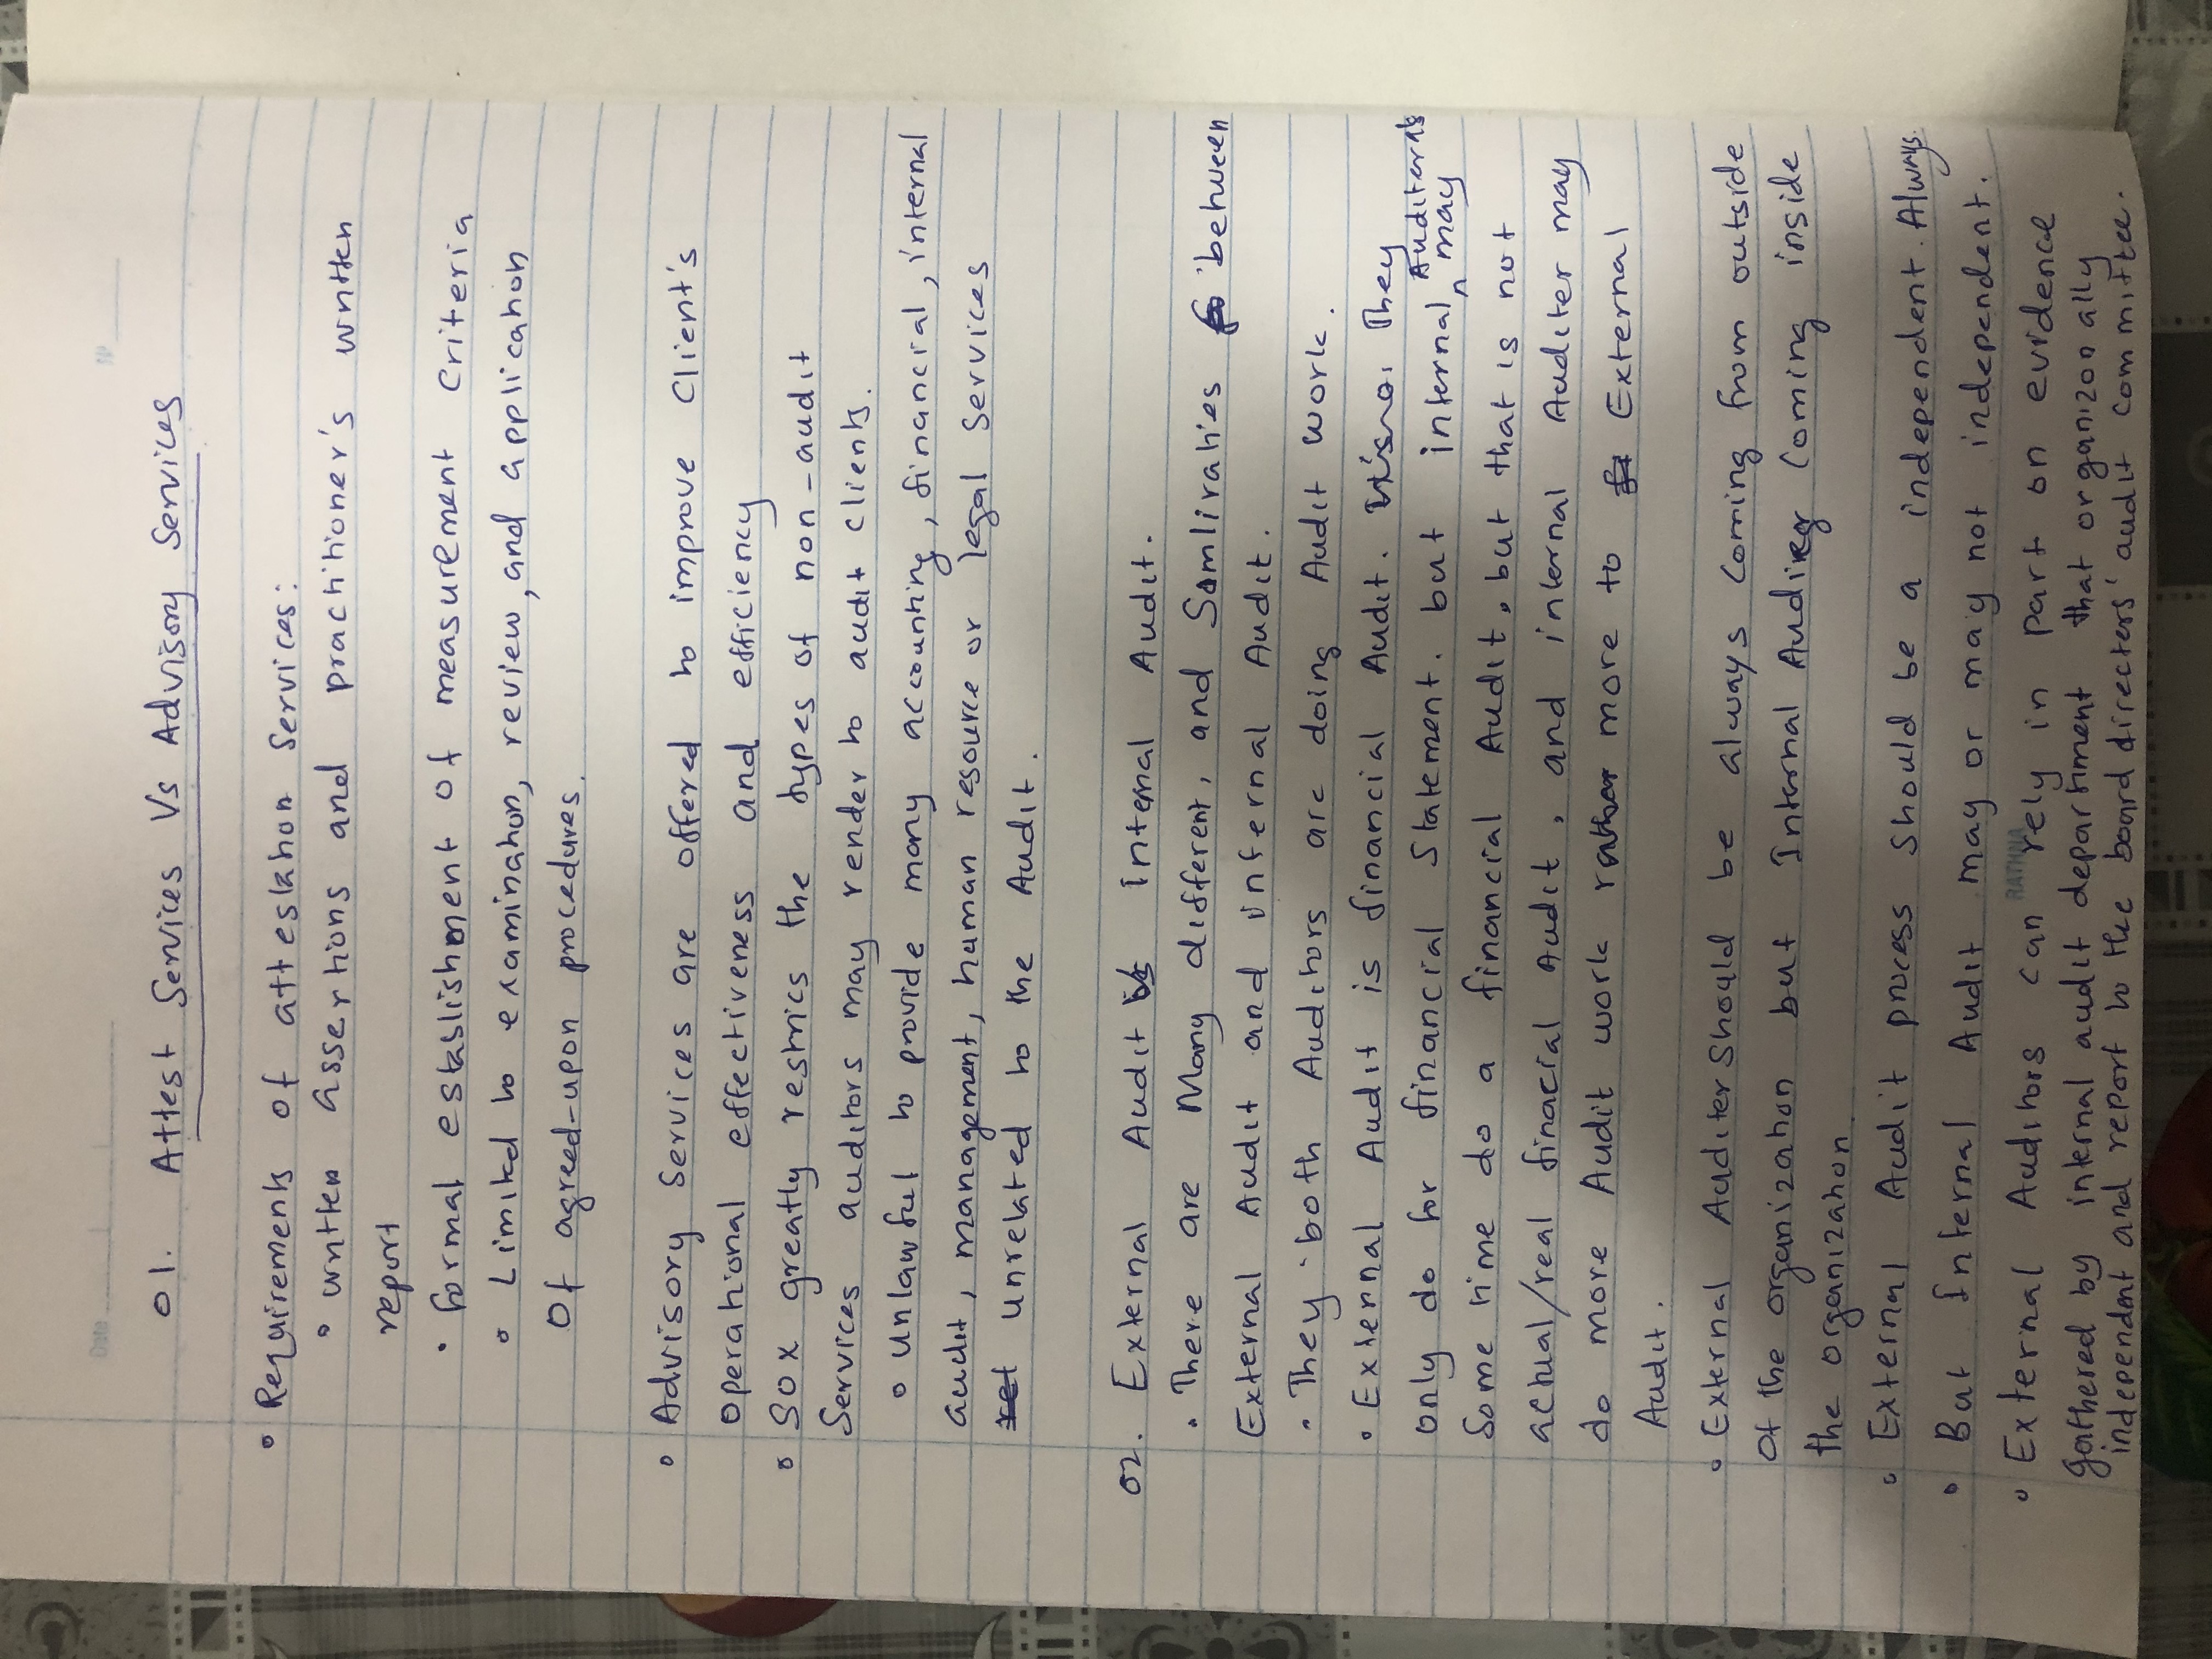 Date
No
01. Attest Services Vs Advisory Services
• Requirements of attestation Services:
• written assertions and practitioner's written
report
• formal establishment of measurement criteria
• Limited to examination, review, and application
Of agreed-upon procedures.
• Advisory Services are offered to improve Client's
operational effectiveness and efficiency
• SOX greatly restrics the types of non-audit
Services auditors may render to audit clients.
• unlawful to provide many accounting, financial, internal
audit, management, human resource or legal Services
unrelated to the Audit.
02. External Audit Vs internal Audit.
• There are Many different, and Samliraties between
External Audit and internal Audit.
• They both Auditors are doing Audit work.
• External Audit is financial Audit. They
only do for financial Statement. but internal Auditer's may
Some time do a financial Audit, but that is not
actual/real finacial Audit, and internal Auditer may
do more Audit work rather more to External
Audit.
• External Auditer Should be always coming from outside
Of the organization but Internal Auditer coming inside
the organization.
• External Audit process should be a independent. Always.
• But Internal Audit may or may not independent.
• External Auditors can rely in part on evidence
RATHNA
gathered by internal audit department that organizonally
independent and report to the board directers' audit committee.